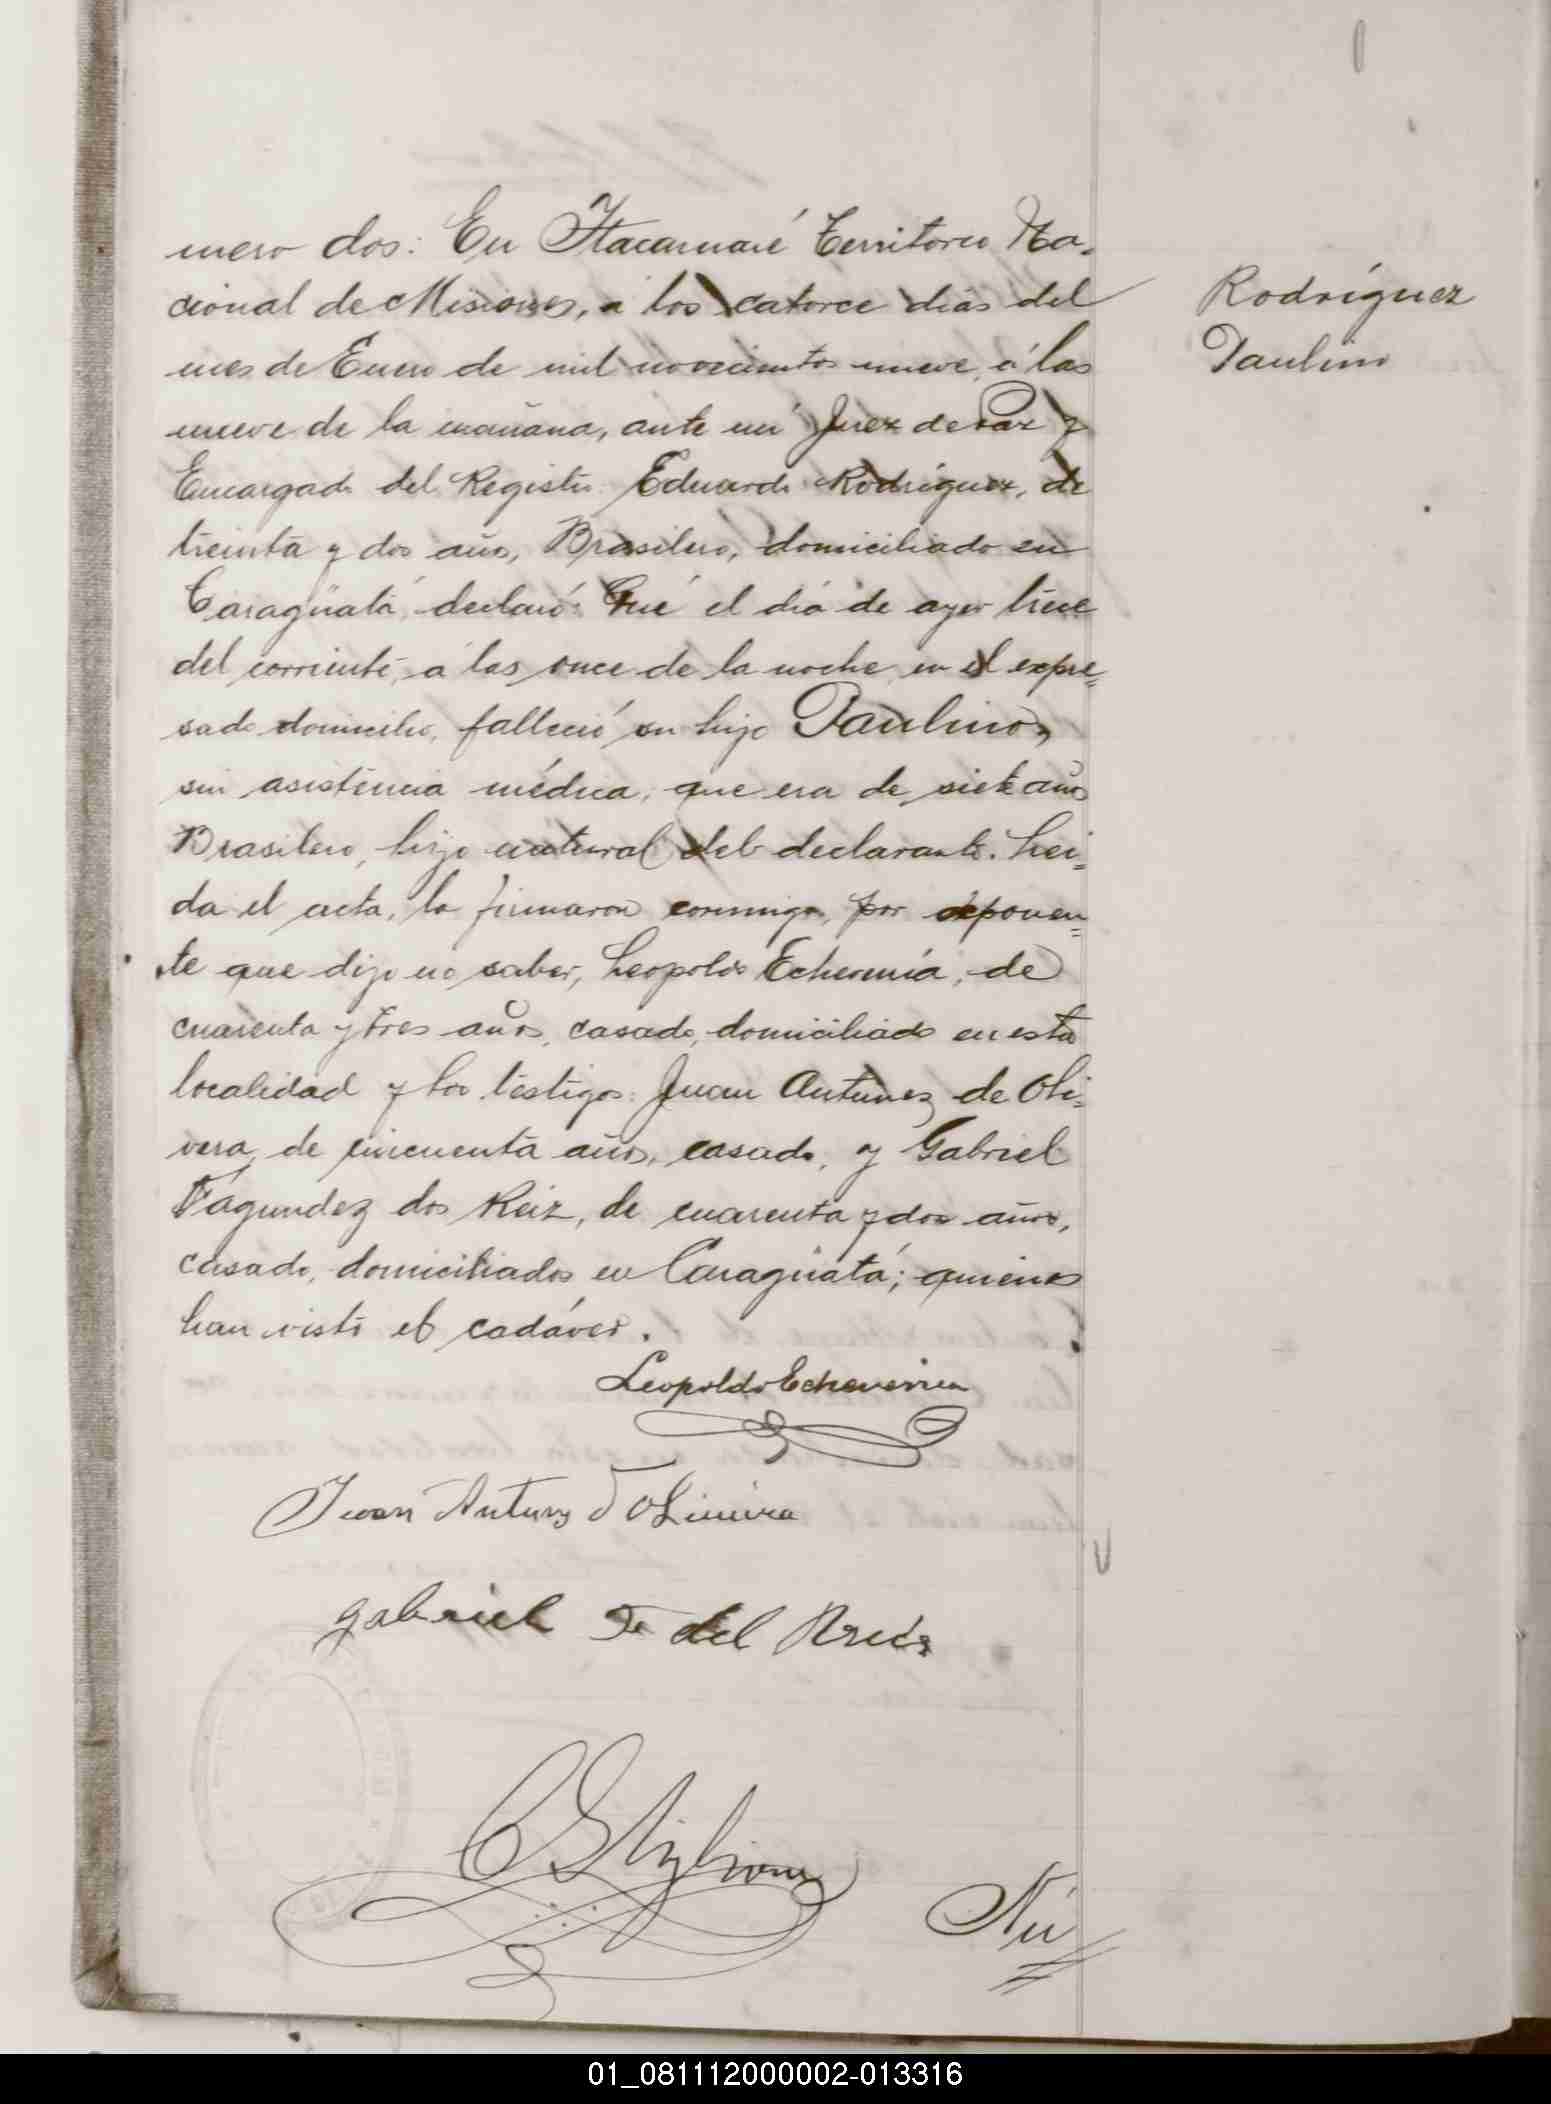 mero dos: En Itacaruaré Territorio Na-
cional de Misiones, a los catorce dias del
Rodríguez
Paulino
mes de Enero de mil novecientos nueve, á las
nueve de la mañana, ante mí Juez de Paz y
Encargado del Registro Eduardo Rodríguez, de
treinta y dos años, Brasilero, domiciliado en
Caragüatá, declaró: Qué el día de ayer trece
del corriente, á las once de la noche, en el expre=
sado domicilio, falleció su hijo Paulino,
sin asistencia médica, que era de siete años
Brasilero, hijo natural del declarante. Lei=
da el acta, la firmaron conmigo, por deponen=
te que dijo no saber, Leopoldo Echeverría, de
cuarenta y tres años, casado, domiciliado en esta
localidad y los testigos: Juan Antunez de Oli=
vera, de cincuenta años, casado, y Gabriel
Fagundez dos Reiz, de cuarenta y dos años,
casado, domiciliados en Caragüatá; quienes
han visto el cadáver.
Leopoldo Echeverria
Juan Antuns d Oliveira
gabriel F. del Reis
Nú
01_081112000002-013316